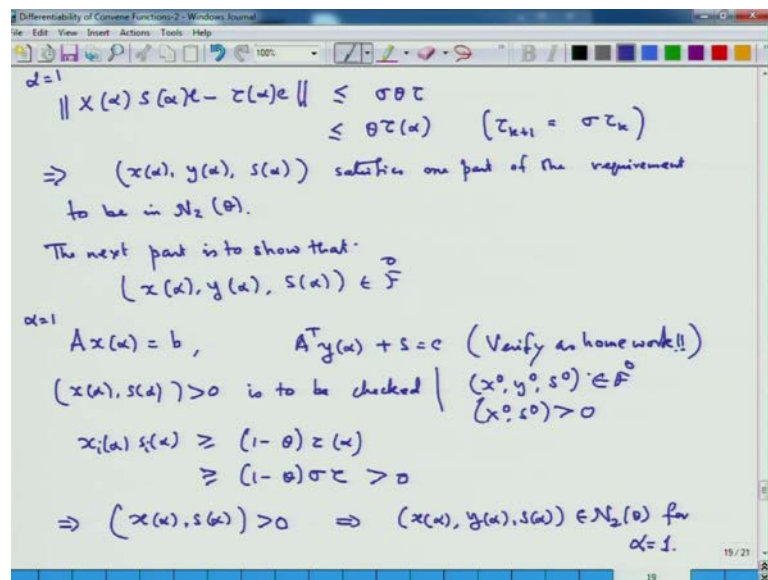 Differentiability of Convene Functions-2 - Windows Journal
File Edit View Insert Actions Tools Help
100%
α=1
|| X(α) S(α)e - τ(α)e || ≤ σθτ
≤ θτ(α) (τₖ₊₁ = στₖ)
⇒ (x(α), y(α), s(α)) satisfies one part of the requirement
to be in N₂(θ).
The next part is to show that.
(x(α), y(α), s(α)) ∈ F⁰
α=1
Ax(α) = b, Aᵀy(α) + s = c (Verify as home work!!)
(x(α), s(α)) > 0 is to be checked | (x⁰, y⁰, s⁰) ∈ F⁰
(x⁰, s⁰) > 0
xᵢ(α) sᵢ(α) ≥ (1-θ) τ(α)
≥ (1-θ) στ > 0
⇒ (x(α), s(α)) > 0 ⇒ (x(α), y(α), s(α)) ∈ N₂(θ) for
α=1.
19/21
19